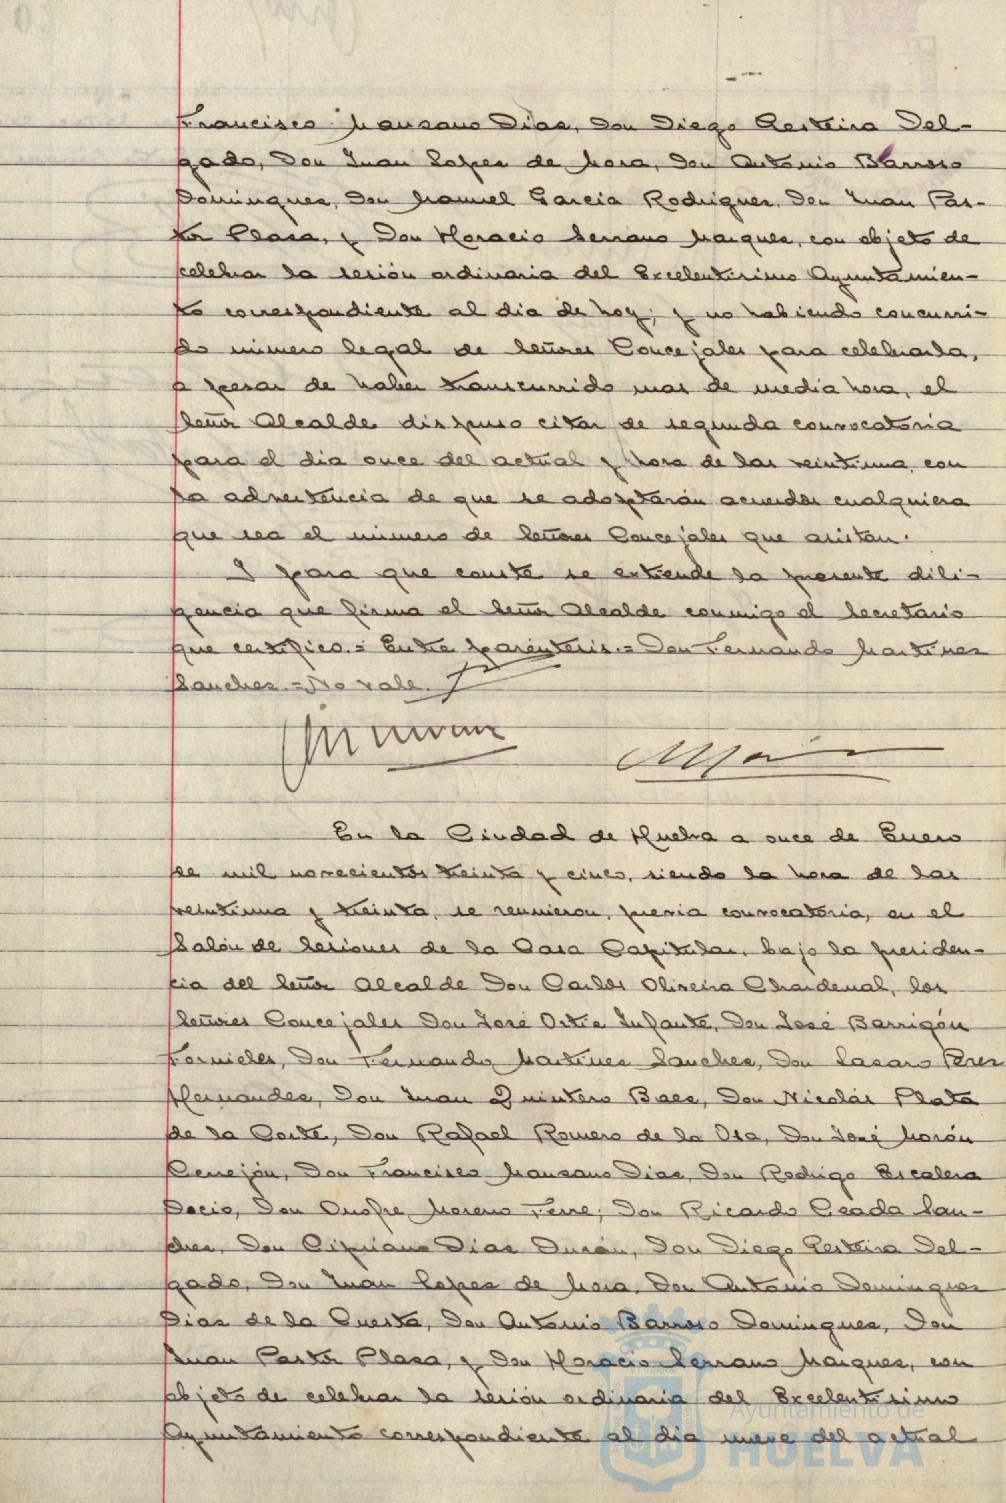 Francisco Manzano Dias, Don Diego Pesteira Del-
gado, Don Juan Lopez de Mora, Don Antonio Barroso
Domingues, Don Manuel Garcia Rodrigues, Don Juan Pas-
tor Plasa, y Don Horacio Serrano Marques, con objeto de
celebrar la sesión ordinaria del Excelentisimo Ayuntamien-
to correspondiente al dia de hoy; y no habiendo concurri-
do número legal de Señores Concejales para celebrarla,
a pesar de haber transcurrido mas de media hora, el
Señor Alcalde dispuso citar de segunda convocatoria
para el dia once del actual y hora de las veintiuna, con
la advertencia de que se adoptarán acuerdos cualquiera
que sea el número de Señores Concejales que asistan.
I para que conste se extiende la presente dili-
gencia que firma el Señor Alcalde conmigo el Secretario
que certifico.= Entre parentesis.= Don Fernando Martines
Sanches.= No vale.
En la Ciudad de Huelva a once de Enero
de mil novecientos treinta y cinco, siendo la hora de las
veintiuna y treinta, se reunieron, previa convocatoria, en el
Salón de Sesiones de la Casa Capitular, bajo la presiden-
cia del Señor Alcalde Don Carlos Oliveira Chardenal, los
Señores Concejales Don José Ortiz Infante, Don José Barrigón
Fornieles, Don Fernando Martines Sanches, Don Lasaro Peres
Hernandes, Don Juan Quintero Baes, Don Nicolás Plata
de la Corte, Don Rafael Romero de la Osa, Don José Morón
Cerrejón, Don Francisco Mansano Dias, Don Rodrigo Escalera
Docio, Don Onofre Moreno Ferre; Don Ricardo Ceada San-
ches, Don Cipriano Dias Durán, Don Diego Pesteira Del-
gado, Don Juan Lopes de Mora, Don Antonio Domingues
Dias de la Cuesta, Don Antonio Barroso Domingues, Don
Juan Pastor Plasa, y Don Horacio Serrano Marques, con
objeto de celebrar la sesión ordinaria del Excelentisimo
Ayuntamiento correspondiente al dia nueve del actual
Ayuntamiento de
HUELVA